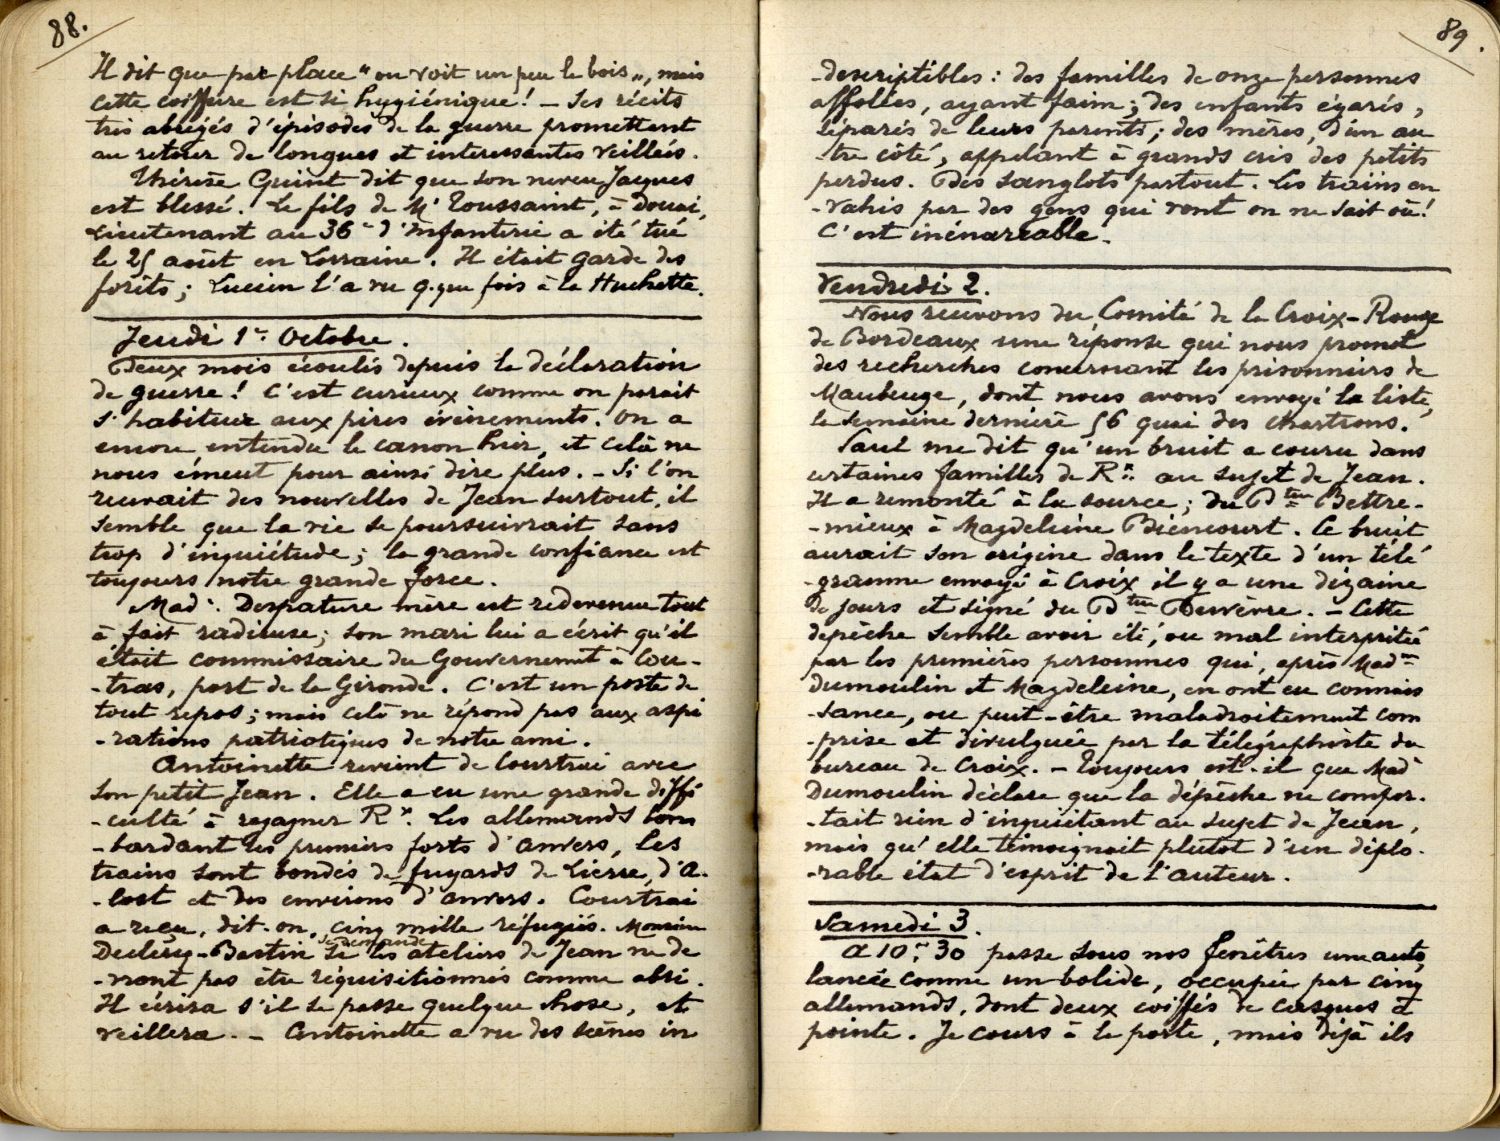 88.
Il dit que par place "on voit un peu le bois", mais
cette coiffure est si hygiénique! – Ses récits
très abrégés d'épisodes de la guerre promettent
au retour de longues et interessantes veillées.
Thérèse Guint dit que son neveu Jacques
est blessé. Le fils de Mr Toussaint, à Douai,
lieutenant au 36e d'Infanterie a été tué
le 25 août en Lorraine. Il était garde des
forêts; Lucien l'a vu q.que fois à la Huchette.
Jeudi 1er Octobre.
Deux mois écoulés depuis la déclaration
de guerre! C'est curieux comme on parait
s'habituer aux pires évènements. On a
encore entendu le canon hier, et celà ne
nous émeut pour ainsi dire plus. – Si l'on
recevait des nouvelles de Jean surtout, il
semble que la vie se poursuivrait sans
trop d'inquiétude; la grande confiance est
toujours notre grande force.
Made. Despature mère est redevenue tout
à fait radieuse; son mari lui a écrit qu'il
était commissaire du Gouvernement à Cou-
-tras, port de la Gironde. C'est un poste de
tout repos; mais celà ne répond pas aux aspi
-rations patriotiques de notre ami.
Antoinette revient de Courtrai avec
son petit Jean. Elle a eu une grande diffi
-culté à regagner Rx. Les allemands bom
-bardant les premiers forts d'Anvers, les
trains sont bondés de fuyards de Lierre, d'A-
-lost et des environs d'Anvers. Courtrai
a reçu, dit-on, cinq mille réfugiés. Monsieur
Decléry-Bastin se demande si les ateliers de Jean ne de
-vront pas être réquisitionnés comme abri.
Il écrira s'il se passe quelque chose, et
veillera. – Antoinette a vu des scènes in
89.
-descriptibles: des familles de onze personnes
affolées, ayant faim; des enfants égarés,
séparés de leurs parents; des mères, d'un au
-tre côté, appelant à grands cris des petits
perdus. Des sanglots partout. Les trains en
-vahis par des gens qui vont on ne sait où!
C'est inénarrable.
Vendredi 2.
Nous recevons du Comité de la Croix-Rouge
de Bordeaux une réponse qui nous promet
des recherches concernant les prisonniers de
Maubeuge, dont nous avons envoyé la liste,
la semaine dernière 56 quai des Chartrons.
Paul me dit qu'un bruit a couru dans
certaines familles de Rx. au sujet de Jean.
Il a remonté à la source; du Dteur Bettre-
-mieux à Magdeleine Diencourt. Ce bruit
aurait son origine dans le texte d'un télé
-gramme envoyé à Croix il y a une dizaine
de jours et signé du Dteur Dewèvre. – Cette
dépêche semble avoir été, ou mal interprêtée
par les premières personnes qui, après Made
Dumoulin et Magdeleine, en ont eu connais
-sance, ou peut-être maladroitement com
-prise et divulguée par la télégraphiste du
bureau de Croix. – Toujours est-il que Made
Dumoulin déclare que la dépêche ne compor-
-tait rien d'inquiétant au sujet de Jean,
mais qu'elle témoignait plutôt d'un déplo-
-rable état d'esprit de l'auteur.
Samedi 3.
A 10h 30 passe sous nos fenêtres une auto,
lancée comme un bolide, occupée par cinq
allemands, dont deux coiffés de casques à
pointe. Je cours à la porte, mais déjà ils